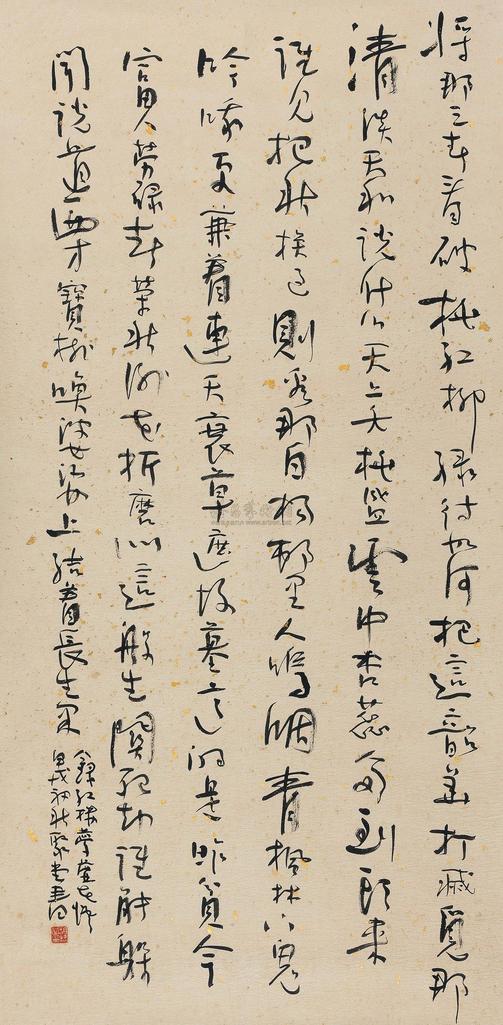 將那三春看破桃紅柳綠待如何把這韶華打滅覓那
清淡天和說什么天上夭桃盛雲中杏蕊多到頭來
誰見把秋捱過則看那白楊村里人嗚咽青楓林下鬼
吟哦更兼着連天衰草遮坟墓這的是昨貧今
富人勞碌春榮秋謝花折磨似這般生關死劫誰能躲
聞說道西方寶樹喚婆娑上結着長生果
錄紅樓夢虛花悟
戌初秋書